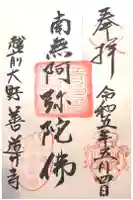 奉拝
令和五年五月廿日
南無阿弥陀佛
越前大野 善導寺